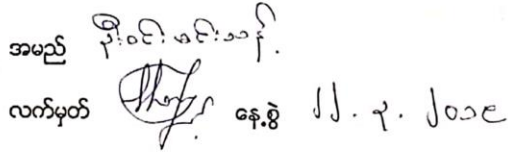 အမည် ဦးဝင်းမင်းသန်.
လက်မှတ် နေ့စွဲ ၂၂. ၃. ၂၀၁၉